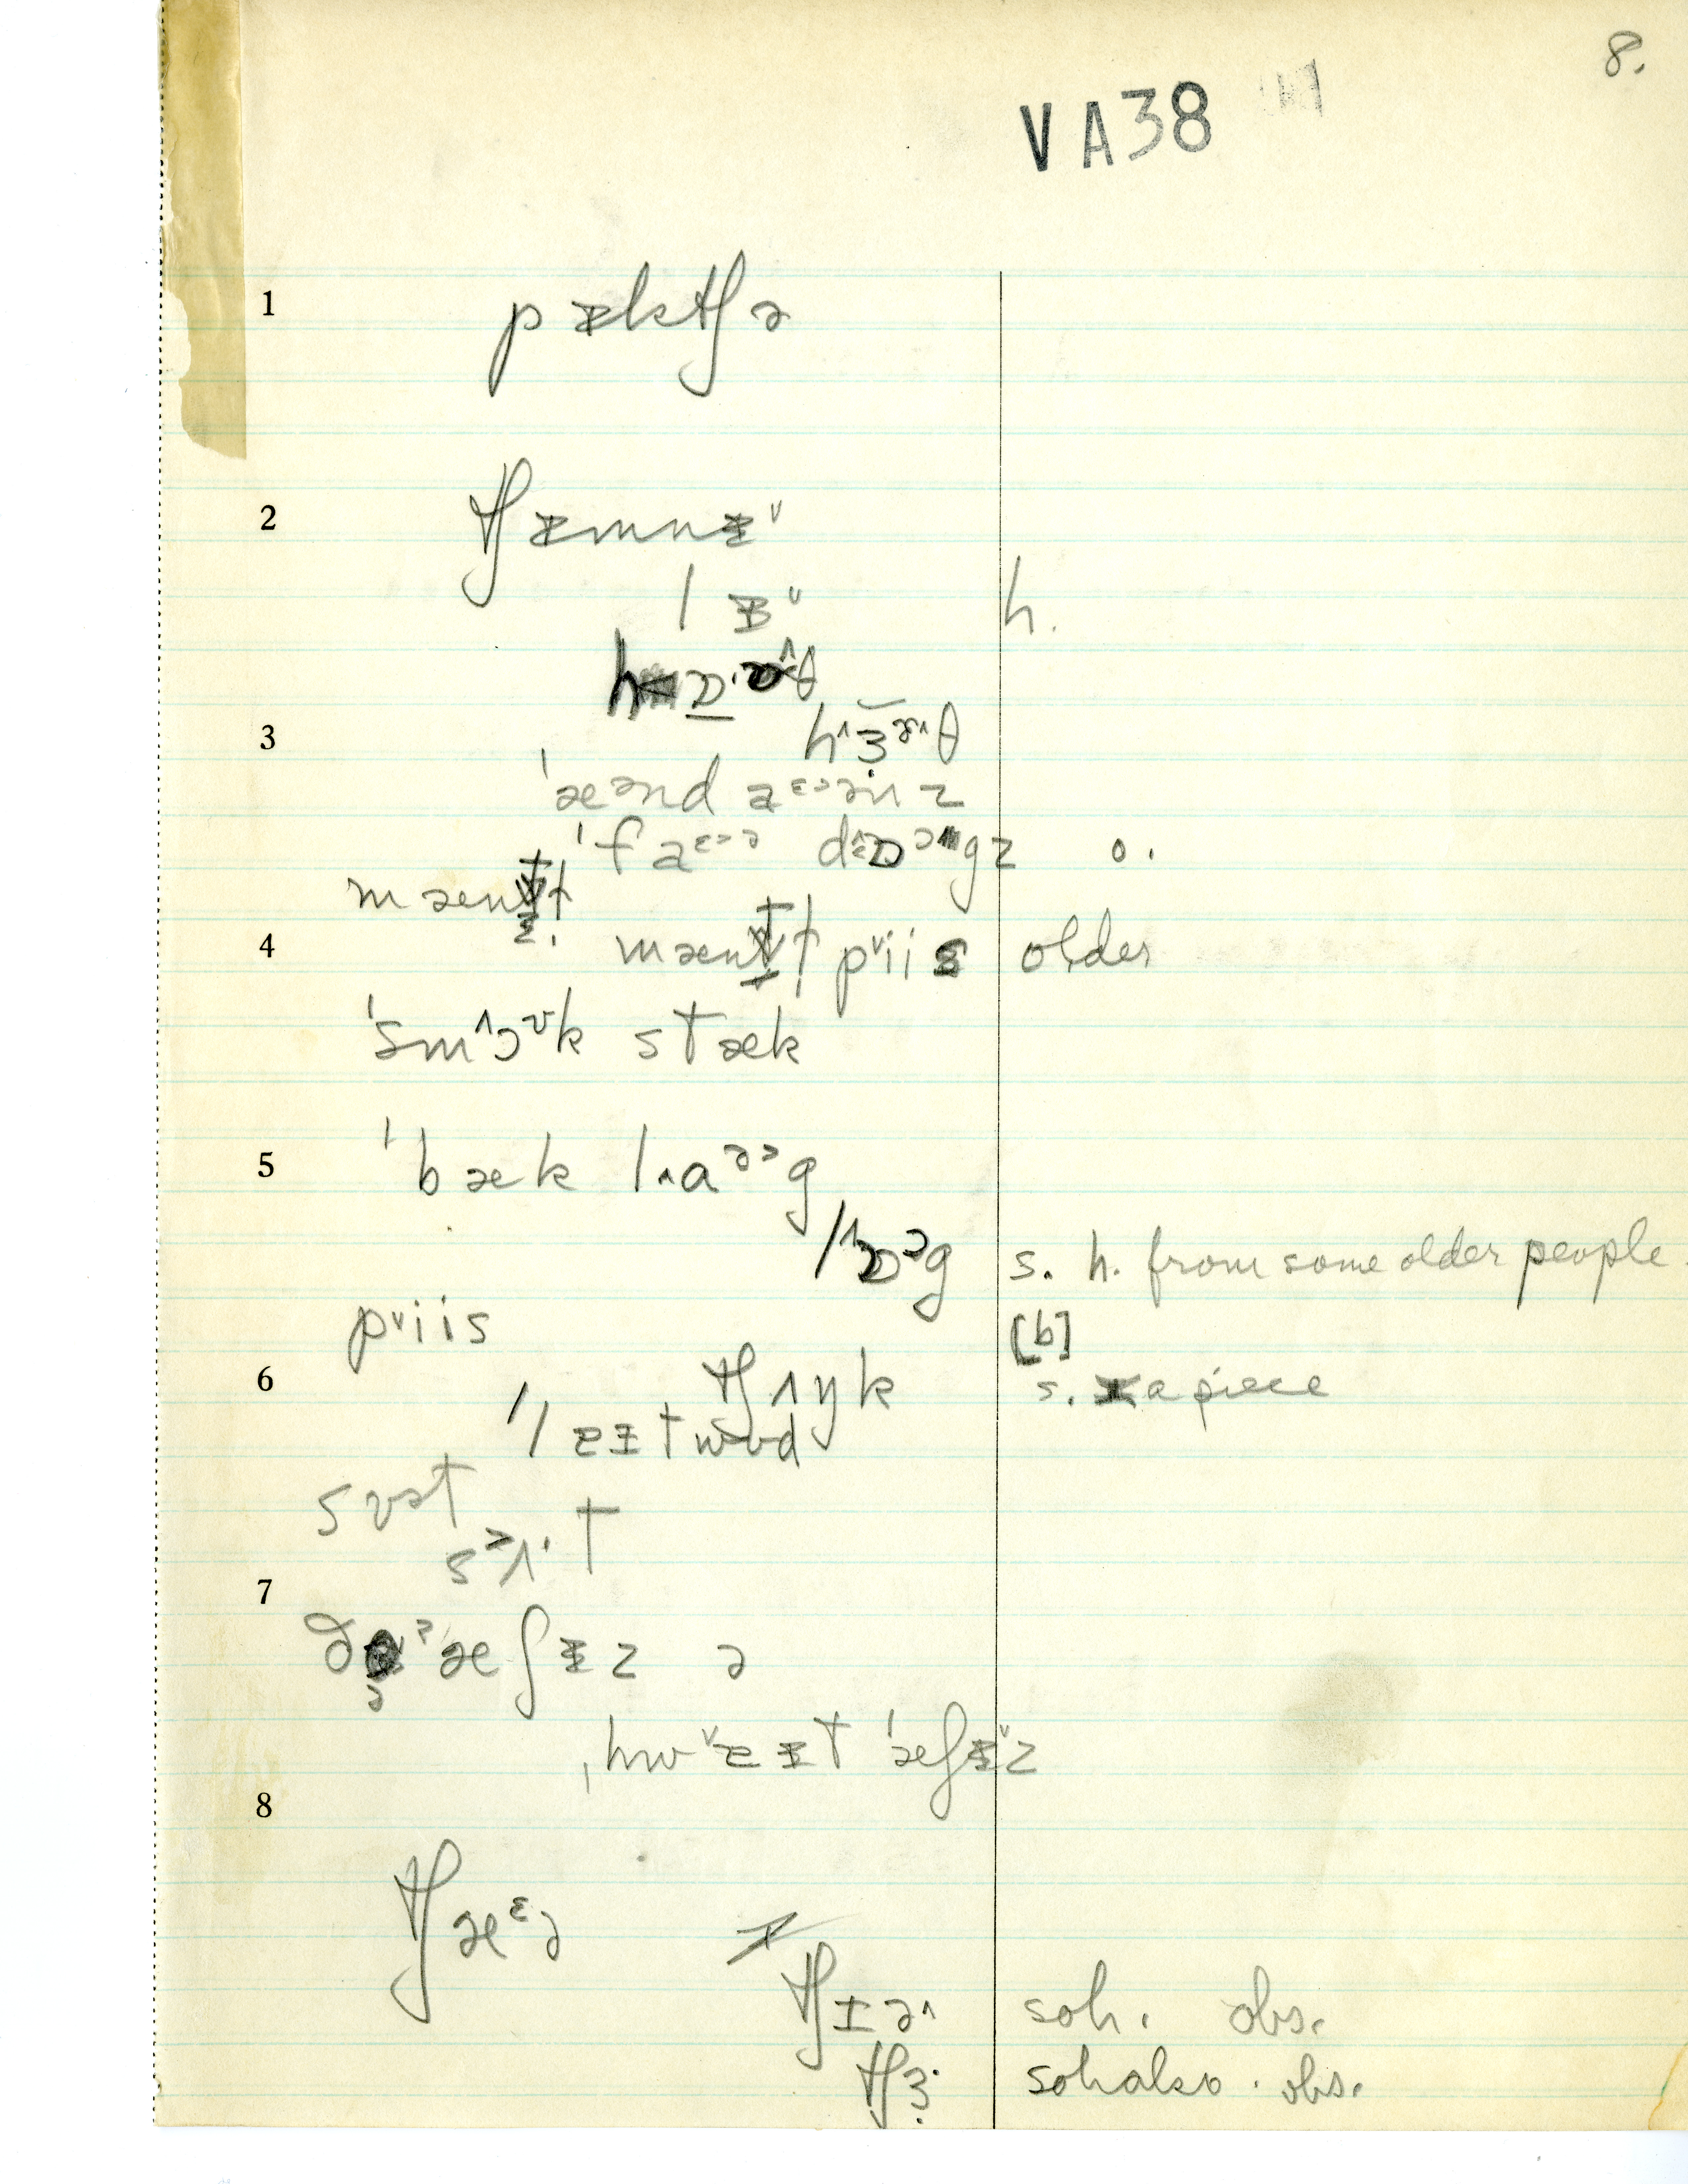 8.
VA38
1 pᵻktʃə
2 tʃᵻmnᵻ˅
lᵻ˅ h.
3 h˄ɜ˞˄θ
ˈæᵊnd aᵋᵊənz
ˈfaᵋᵊə dɒᵓgz o.
mænt̵t
4 mænt̵t p˅iis older
ˈsm˄ɔʊk stæk
5 ˈbæk l˄aᵊᵓg
l˄ɒᵓg s. h. from some older people.
p˅iis [b]
6 tʃʌŋk s. a piece
ˈleɪtwʊd
sʊət
sᵊʌ·t
7
ðə ˀæʃᵻz ə
ˌhw˅eɪt ˈæʃᵻ˅z
8
tʃæᵋə
tʃɪə˄ soh. obs.
tʃɜ· soh also. obs.